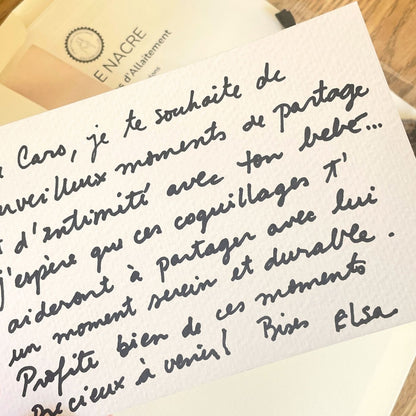 E NACRE
s d'Allaitement
Caro, je te souhaite de
merveilleux moments de partage
d'intimité avec ton bébé...
j'espère que ces coquillages t'
aideront à partager avec lui
un moment serein et durable.
Profite bien de ces moments
Précieux à venir! Bises Elsa